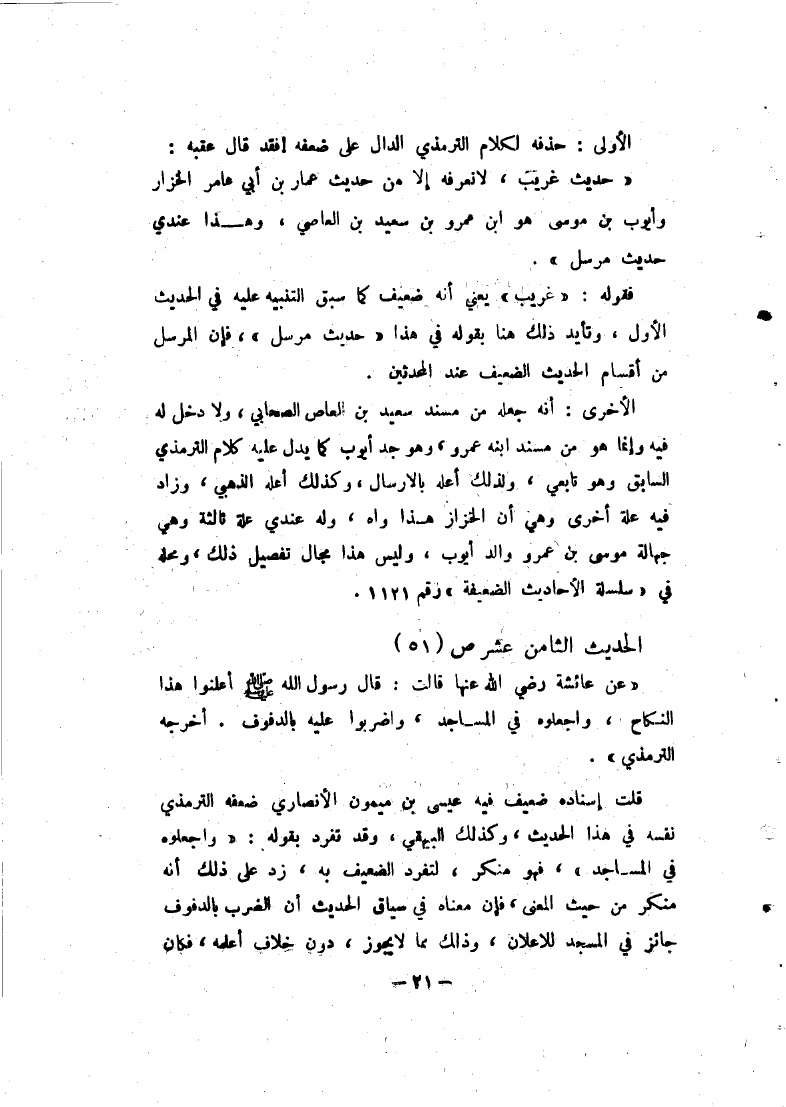 الأولى : حذفه لكلام الترمذي الدال على ضعفه ! فقد قال عقبه :
« حديث غريب ، لانعرفه إلا من حديث عمار بن أبي عامر الخزار
وأيوب بن موسى هو ابن عمرو بن سعيد بن العاصي ، وهــذا عندي
حديث مرسل » .
فقوله : « غريب » يعني أنه ضعيف كما سبق التنبيه عليه في الحديث
الأول ، وتأيد ذلك هنا بقوله في هذا « حديث مرسل » ، فإن المرسل
من أقسام الحديث الضعيف عند المحدثين .
الأخرى : أنه جعله من مسند سعيد بن العاص الصحابي ، ولا دخل له
فيه وإنما هو من مسند ابنه عمرو ، وهو جد أيوب كما يدل عليه كلام الترمذي
السابق وهو تابعي ، ولذلك أعله بالارسال ، وكذلك أعله الذهبي ، وزاد
فيه علة أخرى وهي أن الخزاز هــذا واه ، وله عندي علة ثالثة وهي
جهالة موسى بن عمرو والد أيوب ، وليس هذا مجال تفصيل ذلك ، ومحله
في « سلسلة الأحاديث الضعيفة » رقم ١١٢١ .
الحديث الثامن عشر ص (٥١)
« عن عائشة رضي الله عنها قالت : قال رسول الله ﷺ أعلنوا هذا
النكاح ، واجعلوه في المســاجد ، واضربوا عليه بالدفوف . أخرجه
الترمذي » .
قلت إسناده ضعيف فيه عيسى بن ميمون الأنصاري ضعفه الترمذي
نفسه في هذا الحديث ، وكذلك البيهقي ، وقد تفرد بقوله : « واجعلوه
في المســاجد » ، فهو منكر ، لتفرد الضعيف به ، زد على ذلك أنه
منكر من حيث المعنى ، فإن معناه في سياق الحديث أن الضرب بالدفوف
جائز في المسجد للاعلان ، وذلك مما لايجوز ، دون خلاف أعلمه ، فكان
— ٢١ —